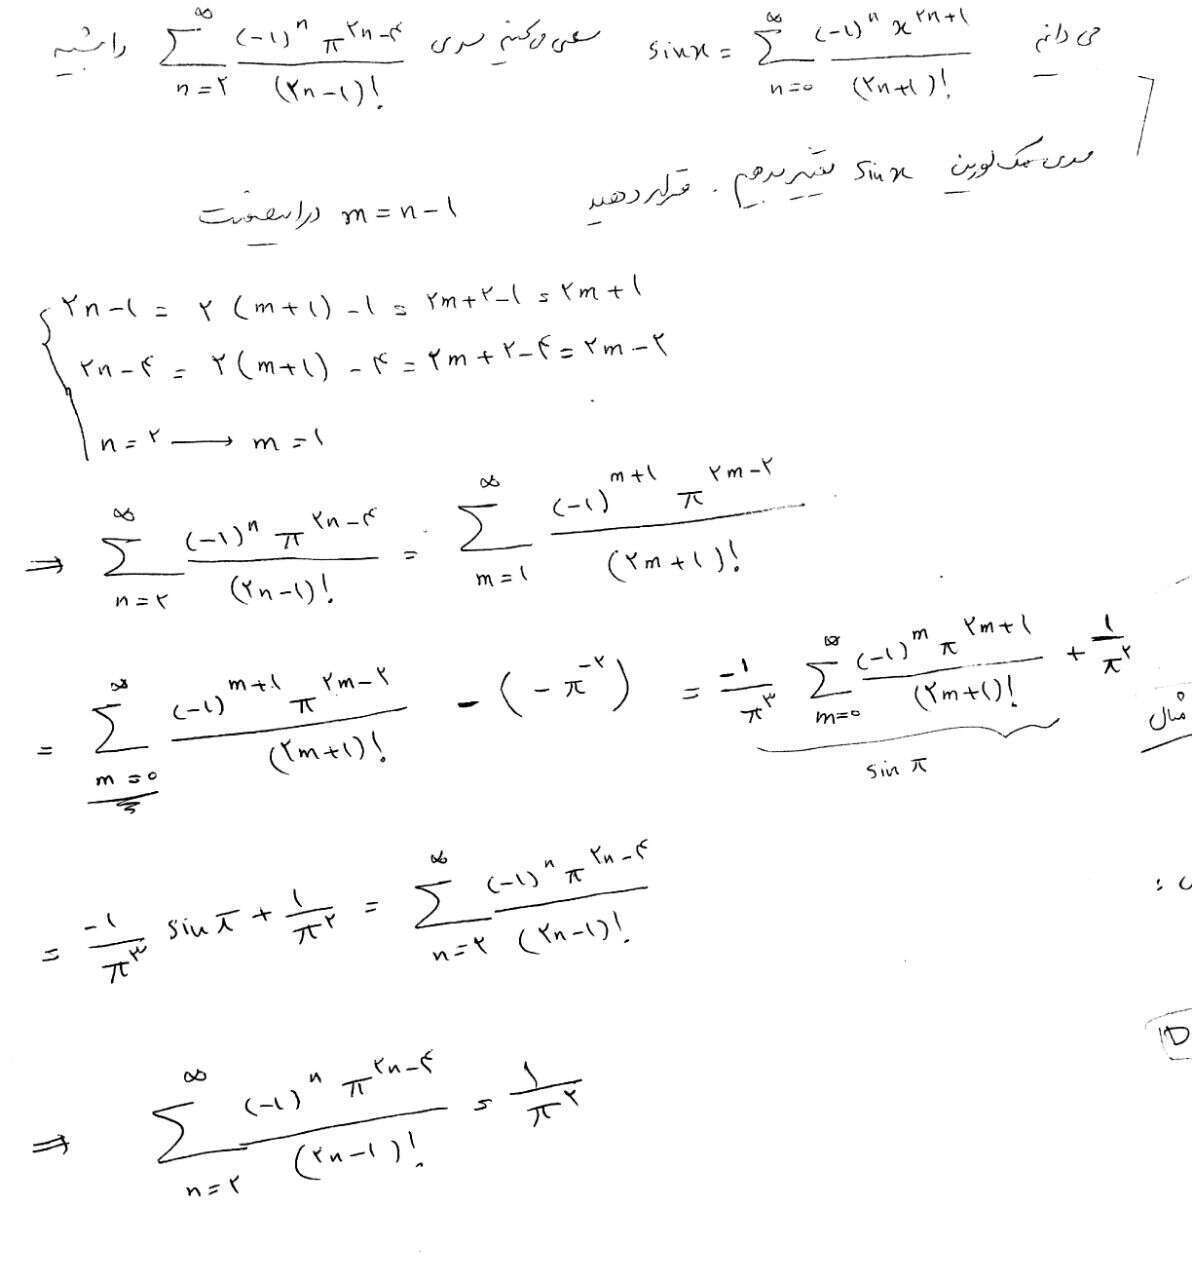 می دانیم sinx = ∑_{n=۰}^{∞} (-۱)^n x^{۲n+۱} / (۲n+۱)! سعی می کنیم سری ∑_{n=۲}^{∞} (-۱)^n π^{۲n-۴} / (۲n-۱)! را شبیه
سری مک لورین sinx تغییر بدهیم . قرار دهید
m = n-۱ در اینصورت
۲n-۱ = ۲(m+۱)-۱ = ۲m+۲-۱ = ۲m+۱
۲n-۴ = ۲(m+۱)-۴ = ۲m+۲-۴ = ۲m-۲
n=۲ ⟶ m=۱
⇒ ∑_{n=۲}^{∞} (-۱)^n π^{۲n-۴} / (۲n-۱)! = ∑_{m=۱}^{∞} (-۱)^{m+۱} π^{۲m-۲} / (۲m+۱)!
= ∑_{m=۰}^{∞} (-۱)^{m+۱} π^{۲m-۲} / (۲m+۱)! - (-π^{-۲}) = -۱/π^۳ ∑_{m=۰}^{∞} (-۱)^m π^{۲m+۱} / (۲m+۱)! + ۱/π^۲
sin π
مثال
= -۱/π^۳ sin π + ۱/π^۲ = ∑_{n=۲}^{∞} (-۱)^n π^{۲n-۴} / (۲n-۱)!
⇒ ∑_{n=۲}^{∞} (-۱)^n π^{۲n-۴} / (۲n-۱)! = ۱/π^۲